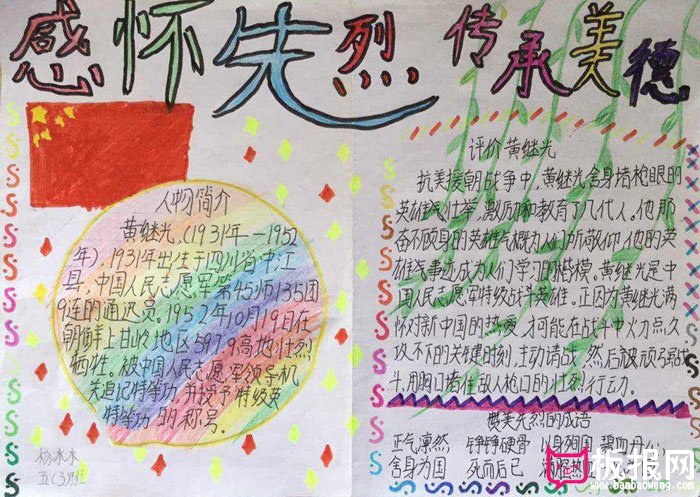 感怀先烈 传承美德
人物简介
黄继光,(1931年——1952
年)。1931年出生于四川省中江
县,中国人民志愿军第45师135团
9连的通迅员,1952年10月19日在
朝鲜上甘岭地区597.9高地壮烈
牺牲。被中国人民志愿军领导机
关追记特等功,并授予特级英
特等功 的称号。
杨冰冰
五(3)班
评价黄继光
抗美援朝战争中,黄继光舍身堵枪眼的
英雄气壮举,激励和教育了几代人。他那
奋不顾身的英雄气概为人们所敬仰,他的英
雄战事迹成为人们学习的楷模。黄继光是中
国人民志愿军特级战斗英雄。正因为黄继光满
怀对新中国的热爱,才可能在战斗中火力点久
攻不下的关键时刻,主动请战,然后被顽强战
斗,用胸口堵住敌人枪口的壮烈行动。
赞美先烈的成语
正气凛然 铮铮硬骨 以身殉国 碧血丹心
舍身为国 死而后已 满腔热
板报网
www.banbaowang.com